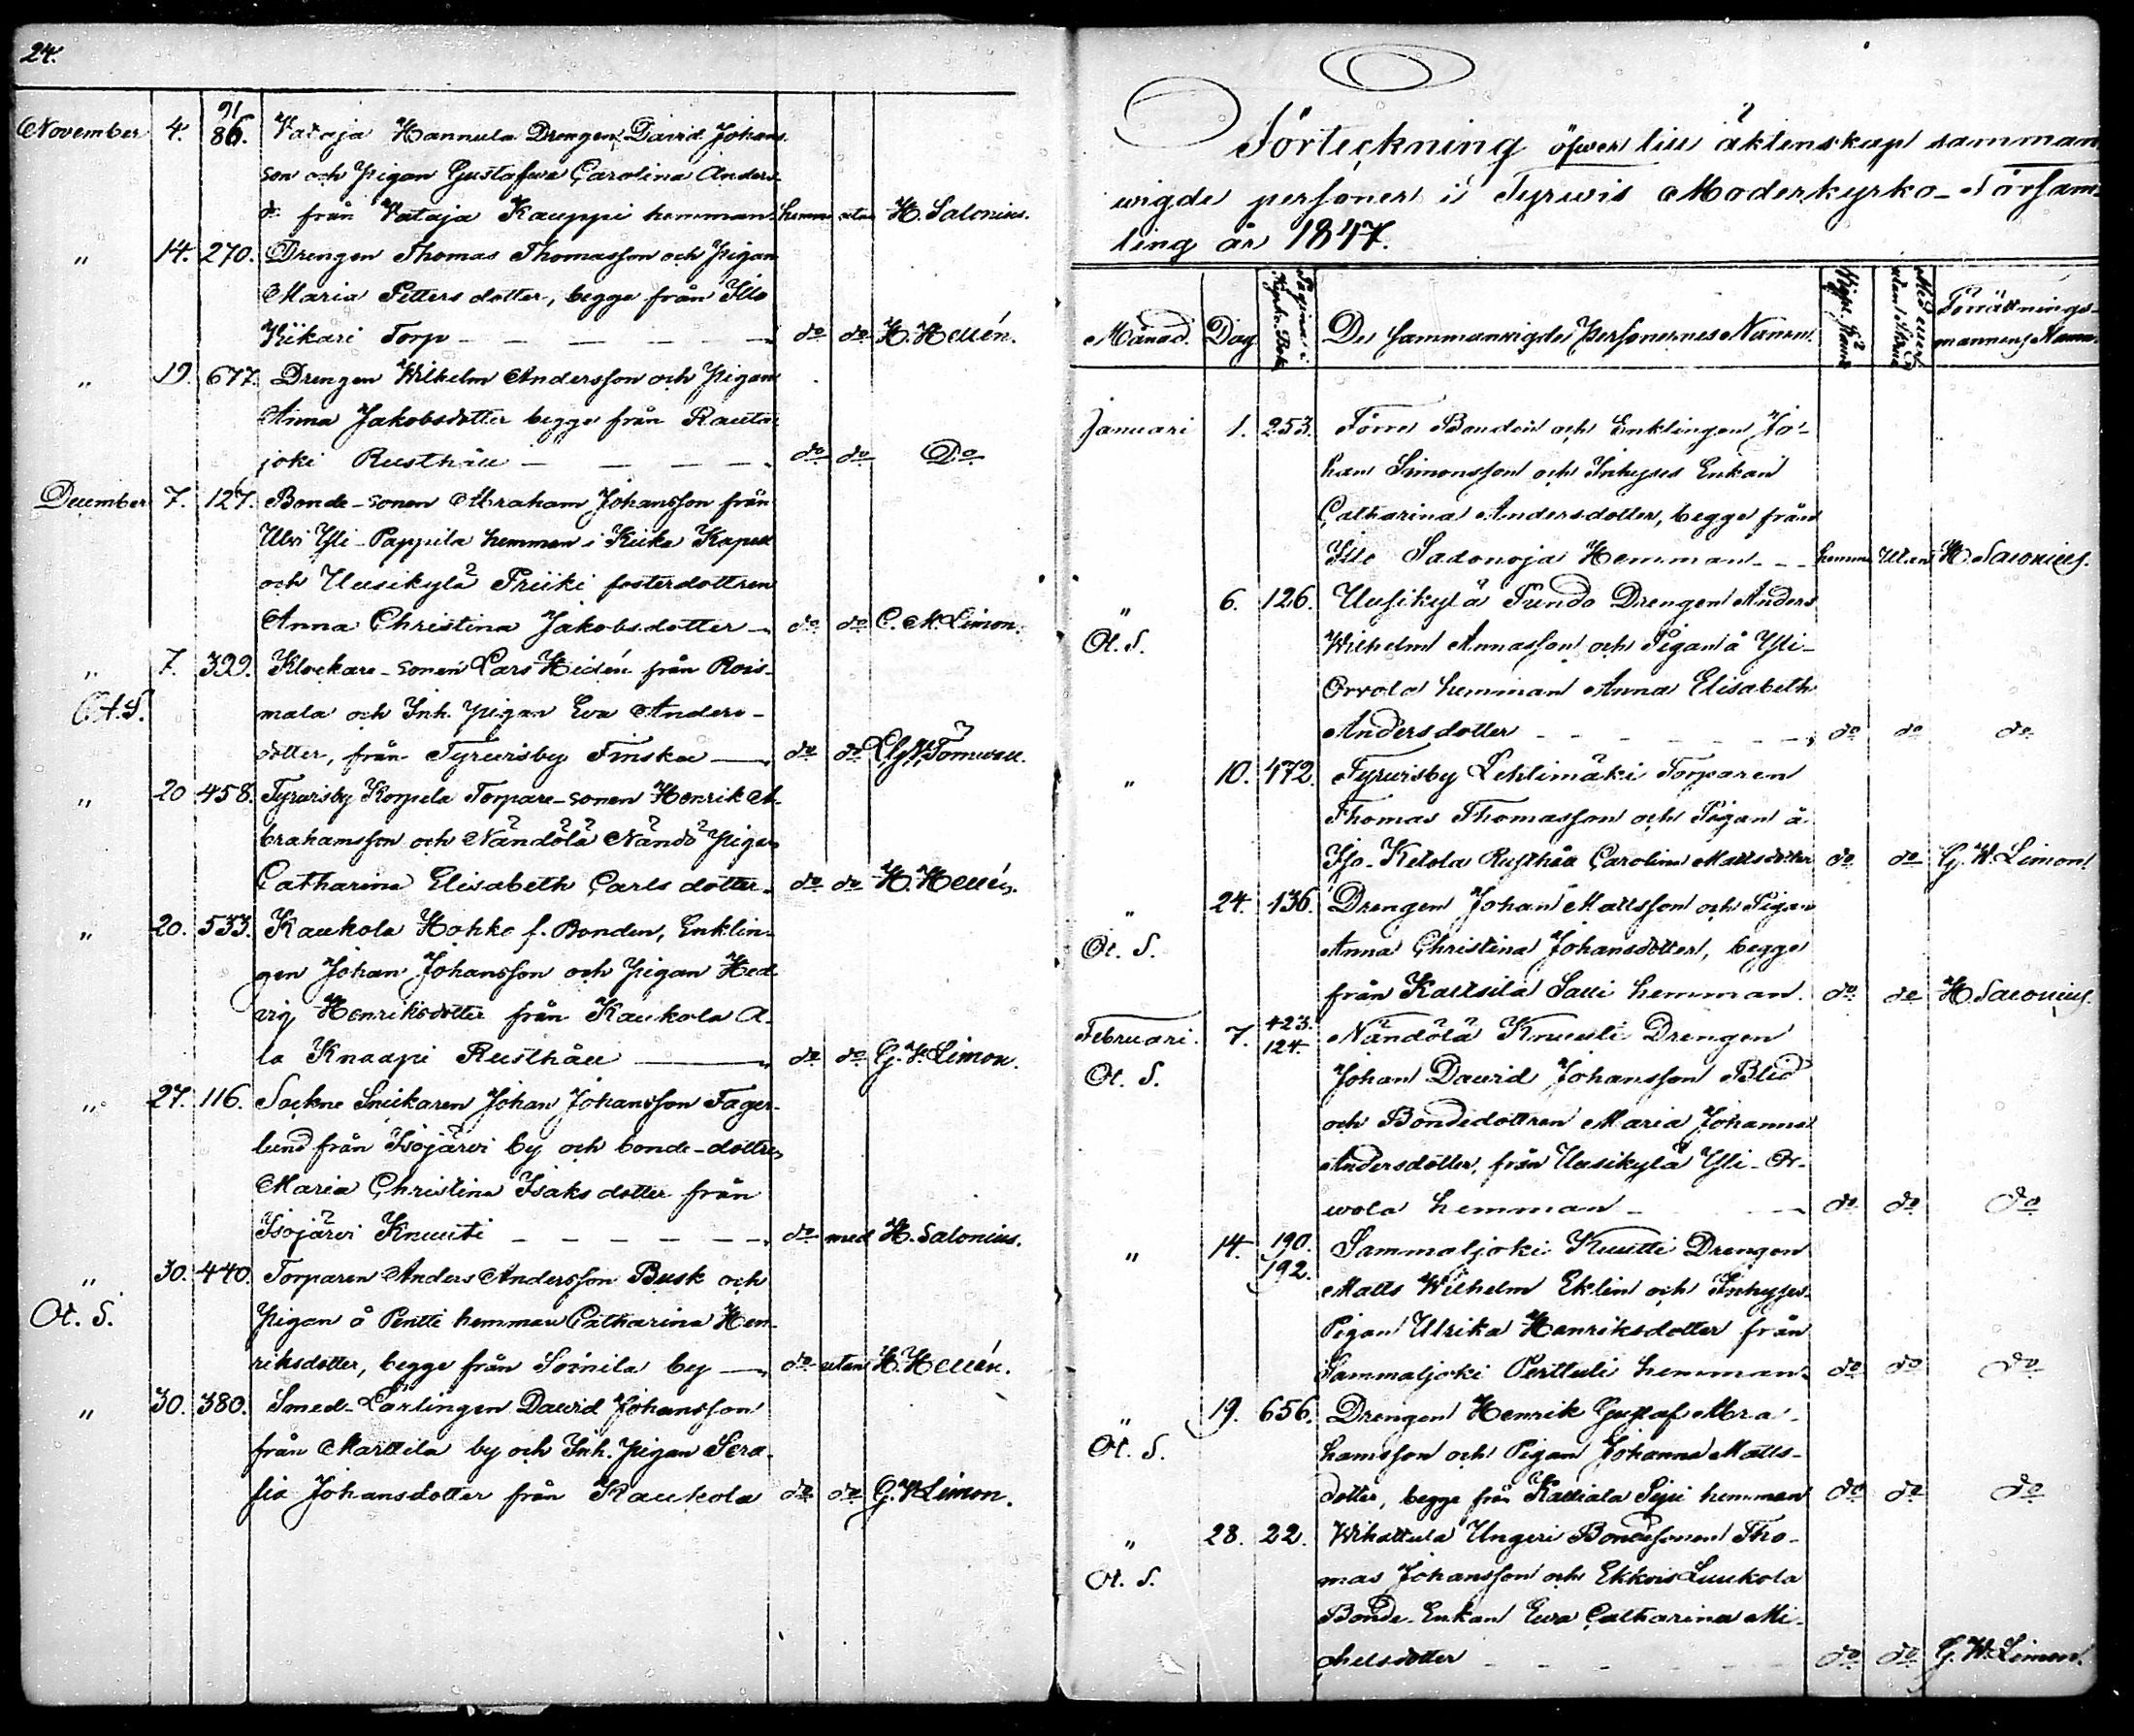 24.
November 4. 91 86. Vataja Hannula Drengen David Johans
son och Pigan Gustafwa Carolina Anders
dr från Vataja Kauppi hemman hemma utan H. Salonius.
" 14. 270. Drengen Thomas Thomasson och Pigan
Maria Petters dotter, begge från Illo
Kiikari Torp do do H. Hellén.
" 19. 677. Drengen Wilhelm Andersson och Pigan
Anna Jakobsdotter begge från Rauta-
joki Rusthåll do do Do
December 7. 127. Bonde-sonen Abraham Johansson från
Ylli-Pappila hemman i Kiika Kapell
och Uusikylä Priiki fosterdottren
Anna Christina Jakobsdotter do do C. M. Limon.
" 7. 329. Klockare-sonen Lars Hidén från Rois-
O.A.S. mala och Inh. pigan Eva Anders-
dotter, från Tyrwisby Finska do do
" 20 458. Tyrwisby Korpela Torpare-sonen Henrik A-
brahamsson och Nändölä Nändö Pigan
Catharina Elisabeth Carls dotter do do H. Hellén.
" 20. 533. Kaukola Hohko f. Bonden, Enklin-
gen Johan Johansson och Pigan Hed-
vig Henriksdotter från Kaukola A-
la Knaapi Rusthåll do do G. W. Limon.
" 27. 116. Sockne Snickaren Johan Johansson Fager-
lund från Isojärvi by och bonde-dottren
Maria Christina Isaks dotter från
Isojärvi Knuuti do med H. Salonius.
" 30. 440. Torparen Anders Andersson Busk och
Ot. S. Pigan å Pentti hemman Catharina Hen-
riksdotter, begge från Soinila by do utan H. Hellén.
" 30. 380. Smed-Lärlingen David Johansson
från Marttila by och Inh. Pigan Sera-
fia Johansdotter från Kaukola do do G. W. Limon.
Förteckning öfwer till äktenskap samman
wigde personer i Tyrwis Moderkyrko-Församling
ling år 1847.
Månad. Dag Pagina i Kyrko-Bok De sammanwigde Personernes Namn. Med eller utan Förrättnings-
mannens Namn.
Januari 1. 253. Förre Bonden och Enklingen Jo-
han Simonsson och Inhyses Enkan
Catharina Andersdotter, begge från
Illo Sadonoja Hemman hemma Utan H. Salonius.
" 6. 126. Uusikylä Fundo Drengen Anders
Ot. S. Wilhelm Annasson och Pigan å Yli-
Orvola hemman Anna Elisabeth
Andersdotter do do do
" 10. 472. Tyrwisby Lehtimäki Torparen
Thomas Thomasson och Pigan å
Iso-Ketola Rusthåll Carolina Mattsdotter do do G. W. Limon.
" 24. 136. Drengen Johan Mattsson och Pigan
Ot. S. Anna Christina Johansdotter, begge
från Kaltsila Salli hemman. do do H. Salonius.
Februari. 7. 423. 124. Nändölä Knuuti Drengen
Ot. S. Johan David Johansson Blid
och Bondedottren Maria Johanna
Andersdotter, från Uusikylä Yli-Or-
wola hemman do do do
" 14. 190. 192. Sammaljoki Kuutti Drengen
Matts Wilhelm Eklin och Inhyses
Pigan Ulrika Henriksdotter från
Sammaljoki Perttuli hemman do do do
" 19. 656. Drengen Henrik Gustaf Abra-
Ot. S. hamsson och Pigan Johanna Matts-
dotter, begge från Kalliala Seppi hemman do do do
" 28. 22. Wihattula Ungeri Bondesonen Tho-
Ot. S. mas Johansson och Ekkois Luukola
Bonde-Enkan Ewa Catharina Mi-
chelsdotter do do G. W. Limon.